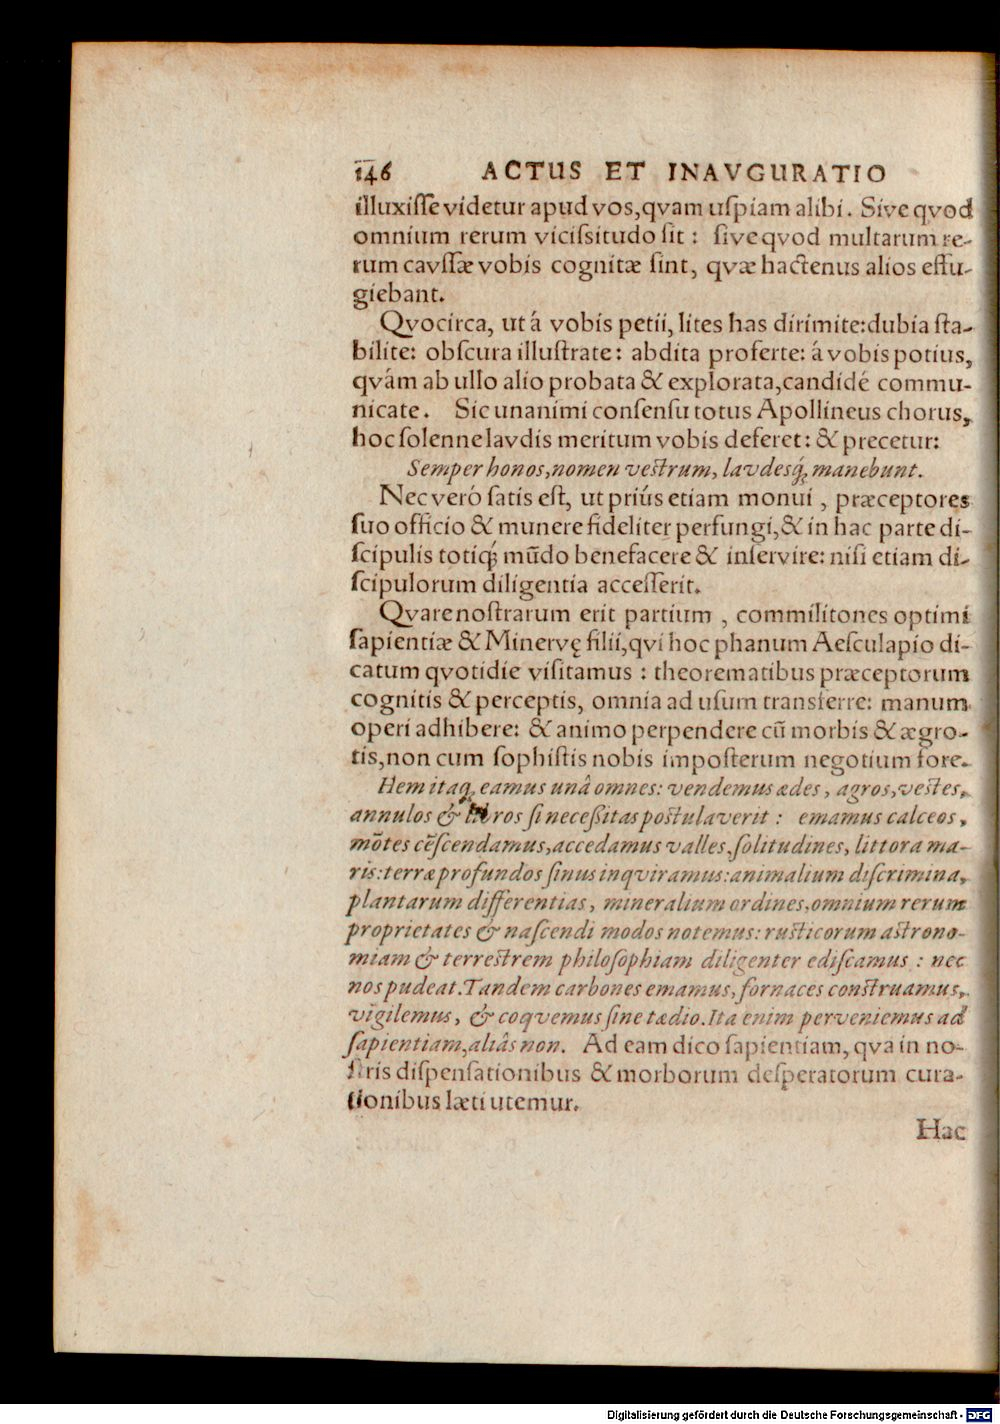 146 ACTUS ET INAVGURATIO
illuxiſſe videtur apud vos, qvam uſpiam alibi. Sive qvod
omnium rerum viciſsitudo ſit : ſive qvod multarum re-
rum cavſſæ vobis cognitæ ſint, qvæ hactenus alios effu-
giebant.
Qvocirca, ut á vobis petii, lites has dirimite: dubia ſta-
bilite: obſcura illuſtrate: abdita proferte: á vobis potius,
qvám ab ullo alio probata & explorata, candidé commu-
nicate. Sic unanimi conſenſu totus Apollineus chorus,
hoc ſolenne lavdis meritum vobis deferet: & precetur:
Semper honos, nomen veſtrum, lavdesq́; manebunt.
Nec veró ſatis eſt, ut priús etiam monui, præceptores
ſuo officio & munere fideliter perfungi, & in hac parte di-
ſcipulis totiq́; mūdo benefacere & inſervire: niſi etiam di-
ſcipulorum diligentia acceſſerit.
Qvare noſtrarum erit partium, commilitones optimi
ſapientiæ & Minervę filii, qvi hoc phanum Aeſculapio di-
catum qvotidie viſitamus : theorematibus præceptorum
cognitis & perceptis, omnia ad uſum transferre: manum
operi adhibere: & animo perpendere cū morbis & ægro-
tis, non cum ſophiſtis nobis impoſterum negotium fore.
Hem itaq; eamus unâ omnes: vendemus ædes, agros, veſtes,
annulos & libros ſi neceßitas poſtulaverit : emamus calceos,
mōtes cēſcendamus, accedamus valles, ſolitudines, littora ma-
ris: terræ profundos ſinus inqviramus: animalium diſcrimina,
plantarum differentias, mineralium ordines, omnium rerum
proprietates & naſcendi modos notemus: ruſticorum aſtrono-
miam & terreſtrem philoſophiam diligenter ediſcamus : nec
nos pudeat. Tandem carbones emamus, fornaces conſtruamus,
vigilemus, & coqvemus ſine tædio. Ita enim perveniemus ad
ſapientiam, aliâs non. Ad eam dico ſapientiam, qva in no-
ſtris diſpenſationibus & morborum deſperatorum cura-
tionibus læti utemur.
Hac
Digitalisierung gefördert durch die Deutsche Forschungsgemeinschaft - DFG